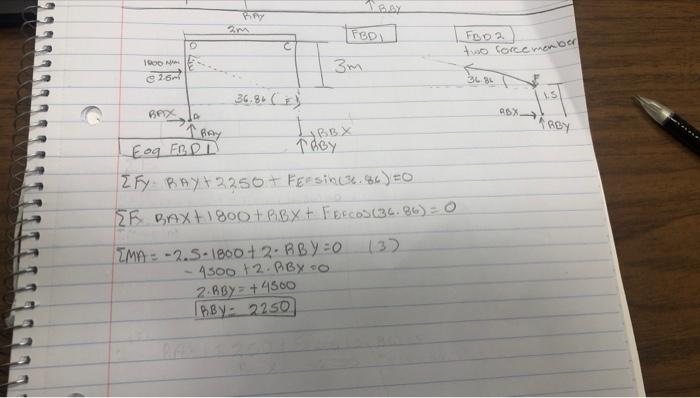 RAY
RBY
2m
FBD1
FBD2
two force member
D
C
1800 N/m
@ 2.5m
E
3m
36.86 ( F )
36.86
F
1.5
RAX
A
RAY
RBX
RBY
RBX
RBY
Eqq FBD1
ΣFy= RAY+2250 + FEFsin(36.86)=0
ΣFx RAX+1800+RBX+ FEFcos(36.86)=0
ΣMA= -2.5·1800+2·RBY=0 (3)
-4500+2·RBY=0
2·RBY=+4500
RBY= 2250